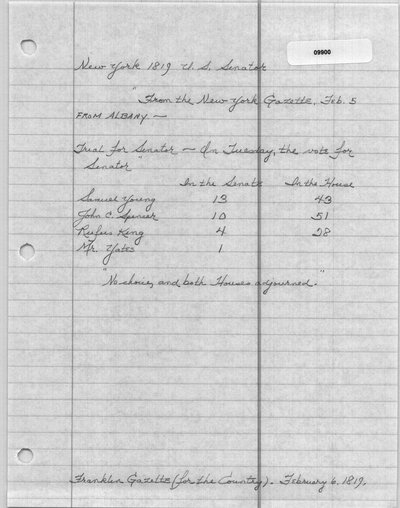 09900
New York 1819 U.S. Senator
"From the New York Gazette, Feb. 5
FROM ALBANY —
Trial for Senator — On Tuesday, the vote for
Senator"
In the Senate In the House
Samuel Young 13 43
John C. Spencer 10 51
Rufus King 4 28
Mr. Yates 1
"No choice, and both Houses adjourned."
Franklin Gazette (for the Country). February 6, 1819.